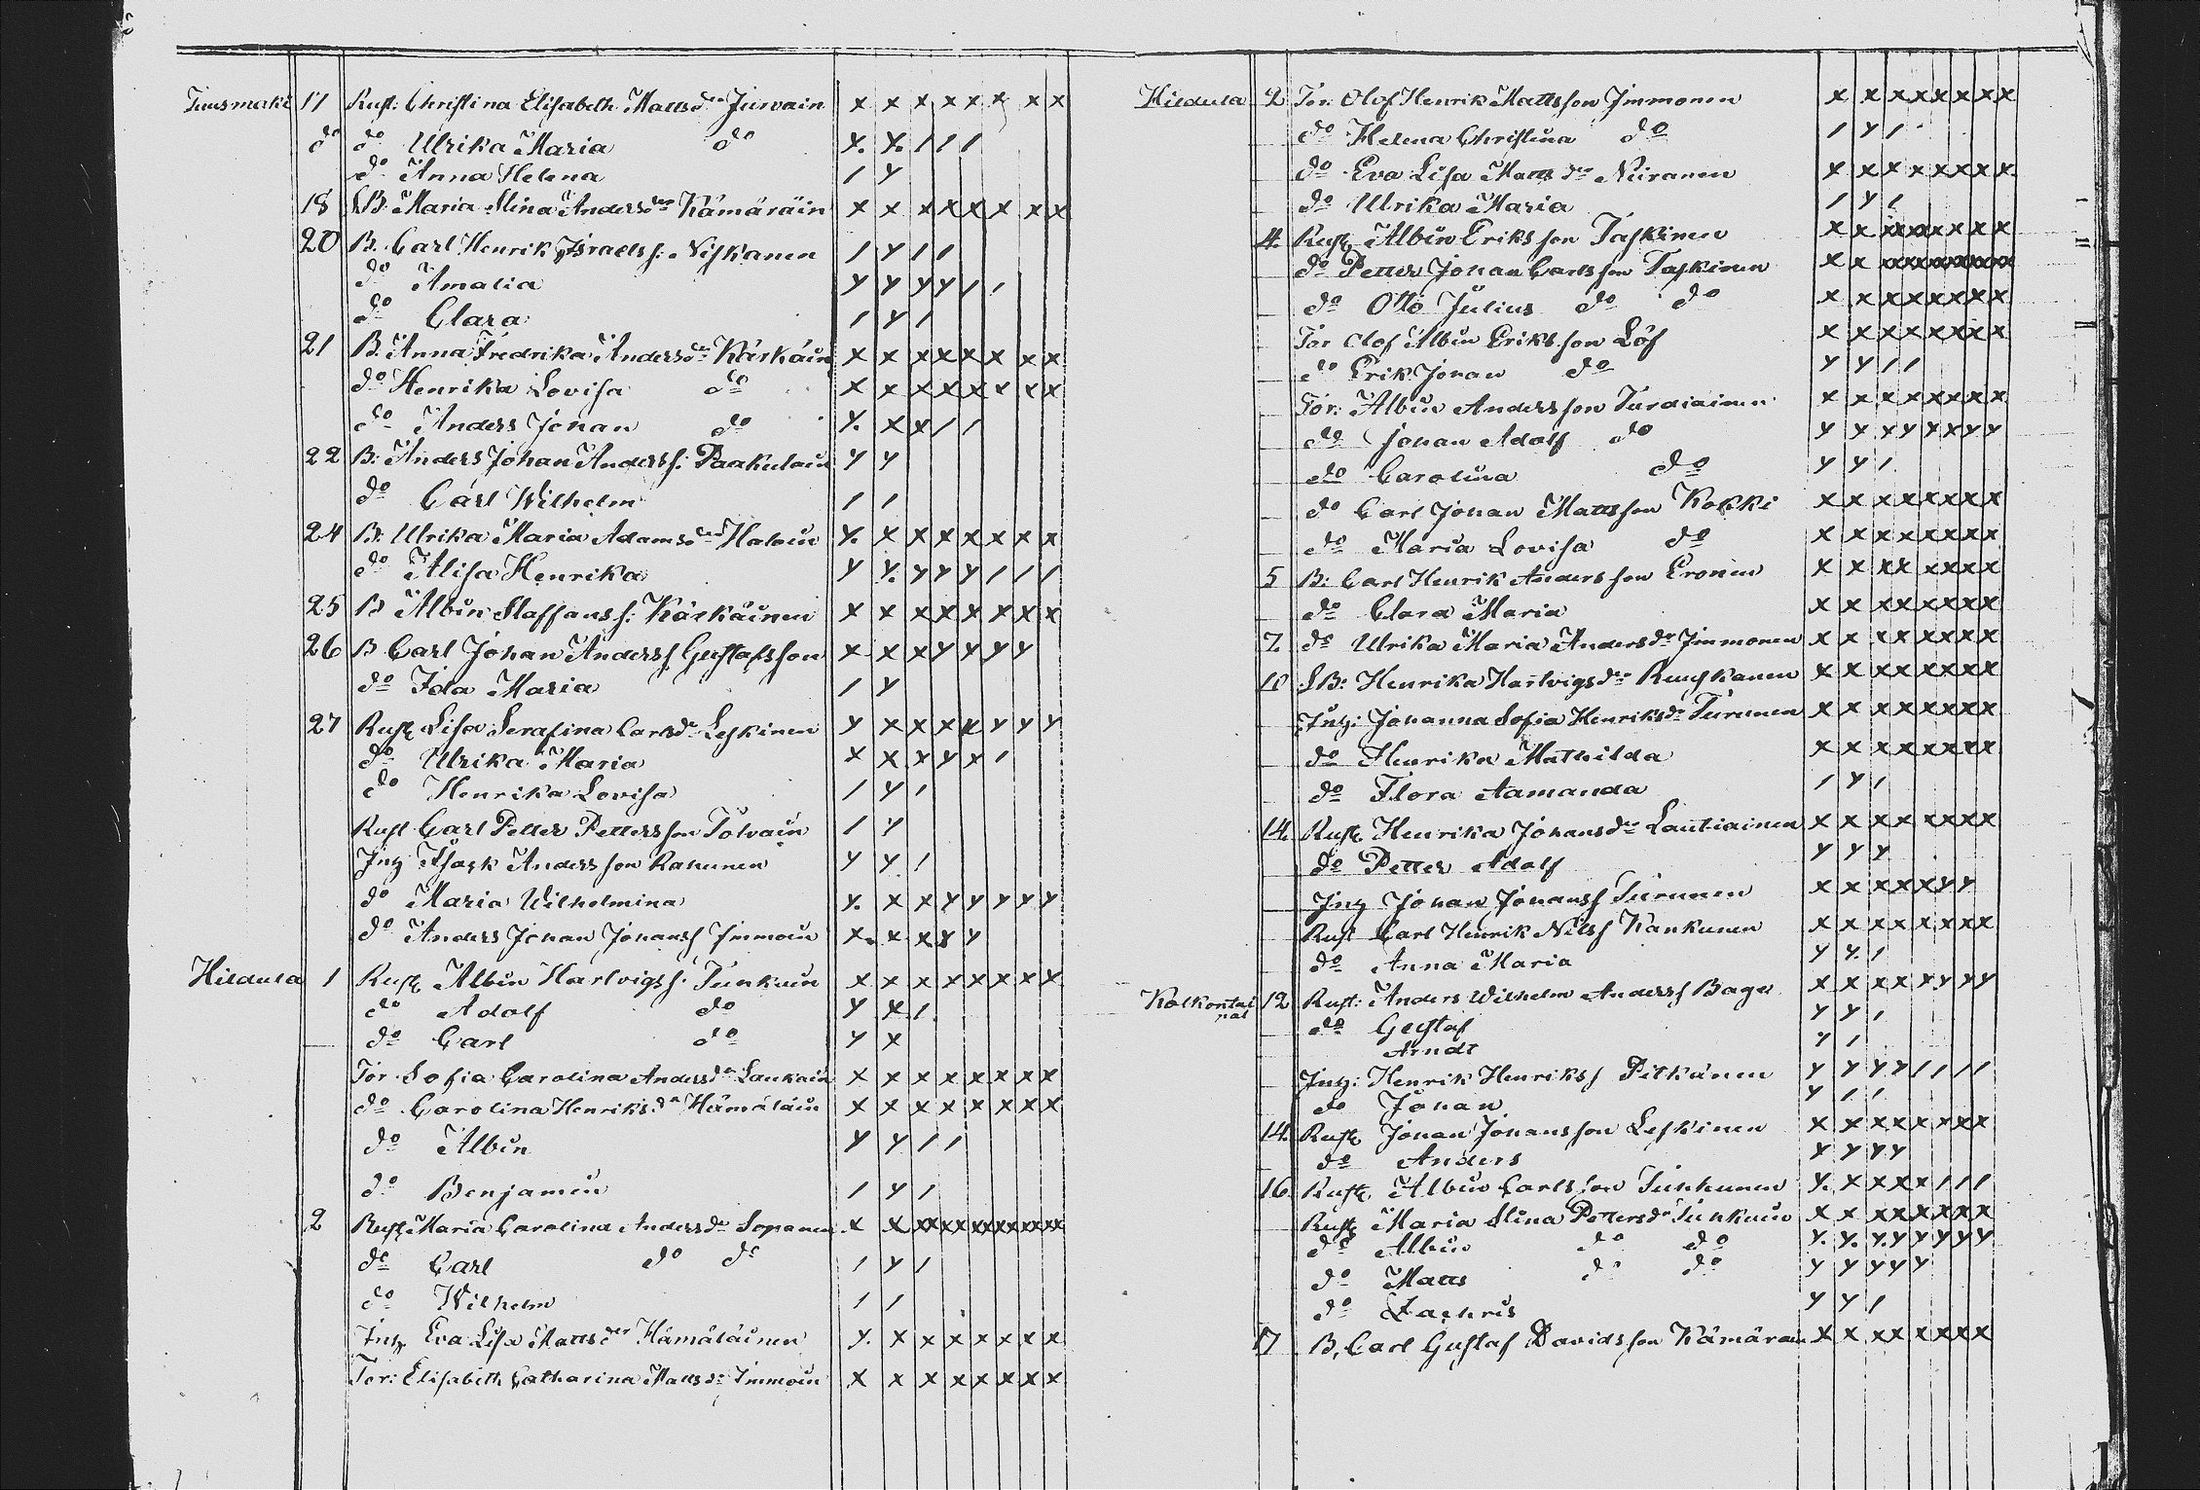 Tuusmäki 17 Rust: Christina Elisabeth Mattsdr Jurvain x x x x x x x x
do do Ulrika Maria do y. y. / / /
do Anna Helena / y
18 SB. Maria Stina Andersdr Kämäräin x x x x x x x x
20 B. Carl Henrik Israels s: Niskanen / y / /
do Amalia y y y y / /
do Clara / y /
21 B. Anna Fredrika Andersdr Kärkäin x x x x x x x x
do Henrika Lovisa do x x x x x x x x
do Anders Johan do y. x x / /
22 B: Anders Johan Anders s: Paakulain y y
do Carl Wilhelm / /
24 B. Ulrika Maria Adamsdr Haloin y. x x x x x x x
do Alisa Henrika y y. y y y / / /
25 B Albin Staffans s: Kärkäinen x x x x x x x x
26 B Carl Johan Anders s Gustafsson x x x y y y y
do Ida Maria / y
27 Rust Lisa Serafina Carlsdr Leskinen y x x x x y y y
do Ulrika Maria x x x y x /
do Henrika Lovisa / y /
Rust Carl Petter Pettersson Tolvain / y
Inh Isack Andersson Rahunen y y /
do Maria Wilhelmina y. x x y y y y y
do Anders Johan Johans s Immoin x. x x y y
Hildula 1 Rust Albin Hartvigs s: Tunkuin x x x x x x x x
do Adolf do y x /
do Carl do y x
Tor Sofia Carolina Andersdr Laukain x x x x x x x x
do Carolina Henriksdr Hämäläin x x x x x x x x
do Albin y y / /
do Benjamin / y /
2 Rust Maria Carolina Andersdr Sopanen x x xx xx xx xx xx xx
do Carl do do / y /
do Wilhelm / /
Inh Eva Lisa Mattsdr Hämäläinen y. x x x x x x x
Tor: Elisabeth Catharina Mattsdr Immoin x x x x x x x x
Hildula 2 Tor: Olof Henrik Mattsson Immonen x x x x x x x x
do Helena Christina do / y /
do Eva Lisa Mattsdr Niiranen x x x x x x x x
do Ulrika Maria / y /
4. Rust Albin Eriksson Taskinen x x xx xx x x x x
do Petter Johan Carlsson Taskinen x x xx xx xx xx xx xx
do Otto Julius do do x x x x x x x x
Tor Olof Albin Eriksson Löf x x x x x x x x
do Erik Johan do y y / /
Tor: Albin Andersson Turdiainen x x x x x x x x
do Johan Adolf do y y y y y y y y
do Carolina do y y /
do Carl Johan Mattsson Kokki x x x x x x x x
do Maria Lovisa do x x x x x x x x
5 B: Carl Henrik Andersson Eronen x x x x x x x x
do Clara Maria x x x x x x x x
7. do Ulrika Maria Andersdr Immonen x x x x x x x x
10 SB: Henrika Hartvigsdr Ruuskanen x x x x x x x x
Inh: Johanna Sofia Henriksdr Turunen x x x x x x x x
do Henrika Mathilda x x x x x x x x
do Flora Aamanda / y /
14. Rust Henrika Johansdr Lautiainen x x x x x x x x
do Petter Adolf y y y
Inh Johan Johans s Turunen x x x x x y y
Rust Carl Henrik Nils s Kankunen x x x x x x x x
do Anna Maria y y. /
Kolkontaipal 12 Rust: Anders Wilhelm Anders s Bager x x x x x y y y
do Gustaf y y /
Arndt y /
Inh: Henrik Henriks s Pitkänen y y y y / / / /
do Johan y / /
14. Rust Johan Johansson Leskinen x x x x x x x x
do Anders y y y y
16. Rust Albin Carlsson Tunkunen y. x x x x / / /
Rust Maria Stina Pettersdr Tunkuin x x x x x x x x
do Albin do do y. y. y. y y y y y
do Matts do do y y y y y
do Zachris y y /
17 B. Carl Gustaf Davidsson Kämärain x x x x x x x x